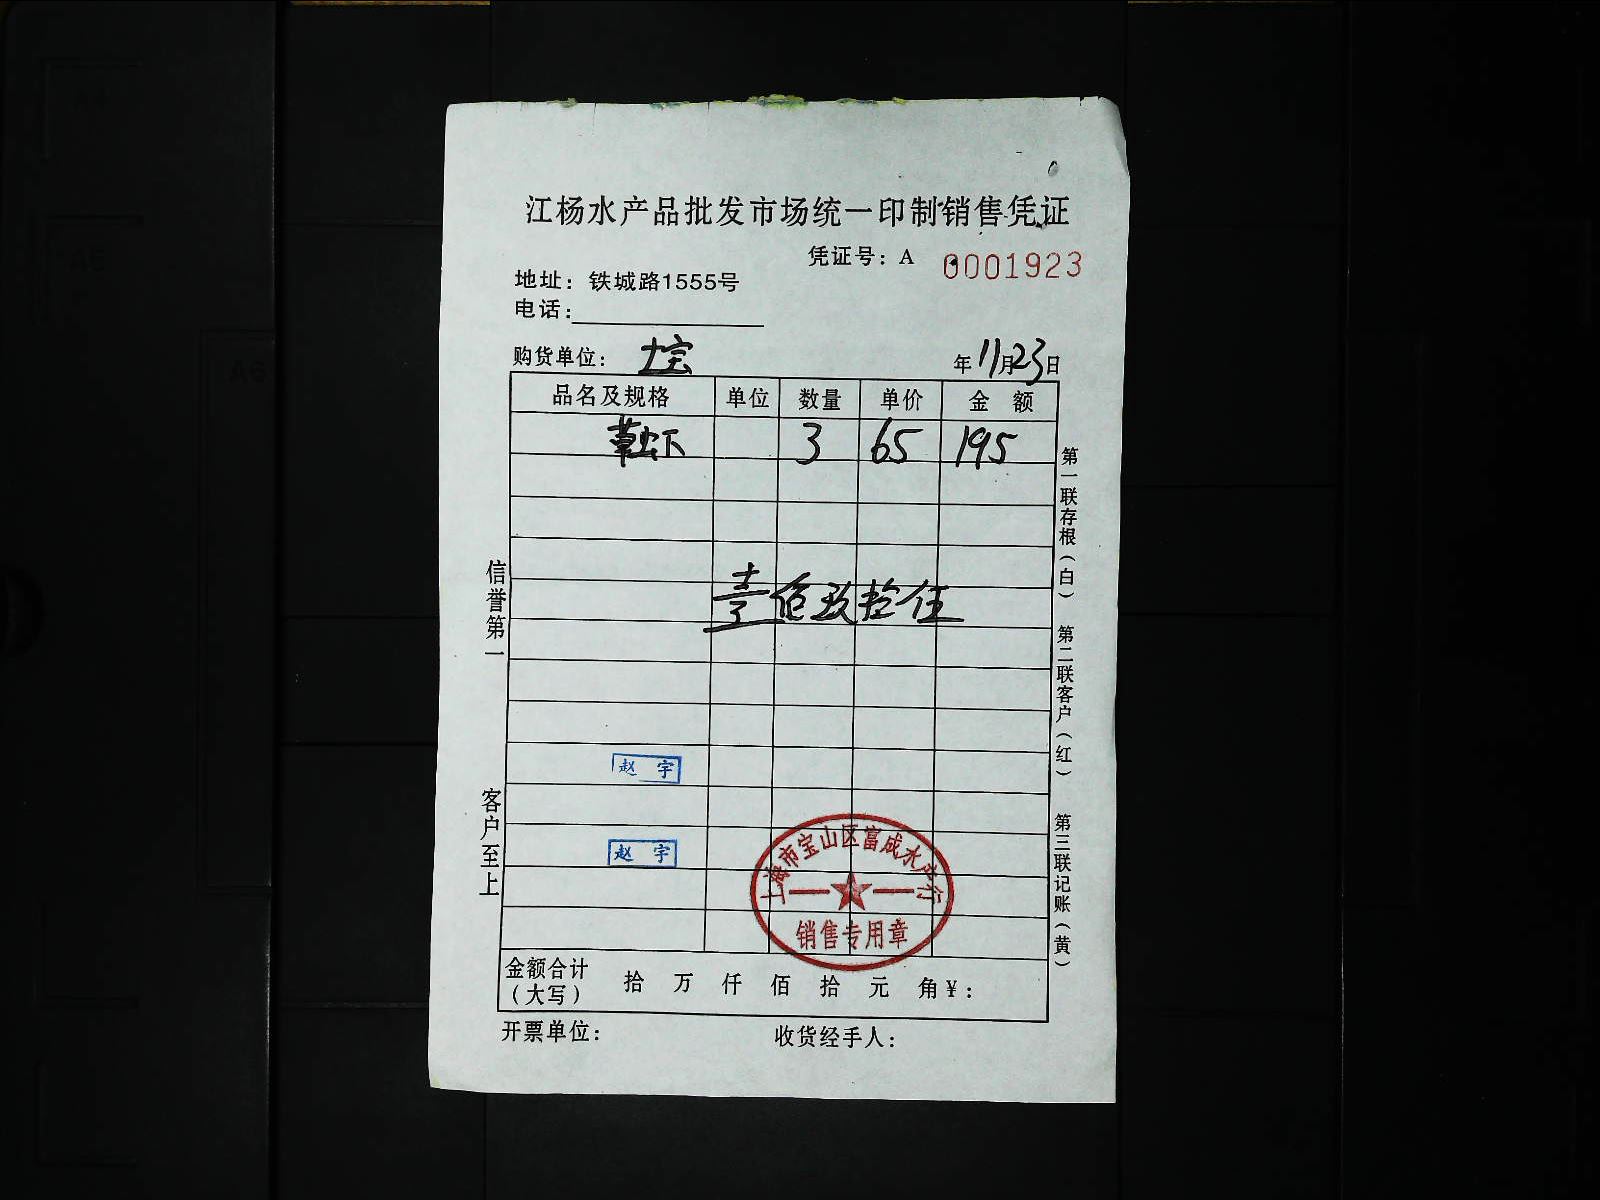 江杨水产品批发市场统一印制销售凭证
凭证号：A 0001923
地址：铁城路1555号
电话：
购货单位：
年11月23日
品名及规格 单位 数量 单价 金额
草虾 3 65 195
壹佰玖拾伍
赵 宇
赵 宇
上海市宝山区富成水产行
销售专用章
金额合计
（大写）
拾 万 仟 佰 拾 元 角¥：
开票单位：
收货经手人：
信誉第一
客户至上
第一联存根（白）
第二联客户（红）
第三联记账（黄）